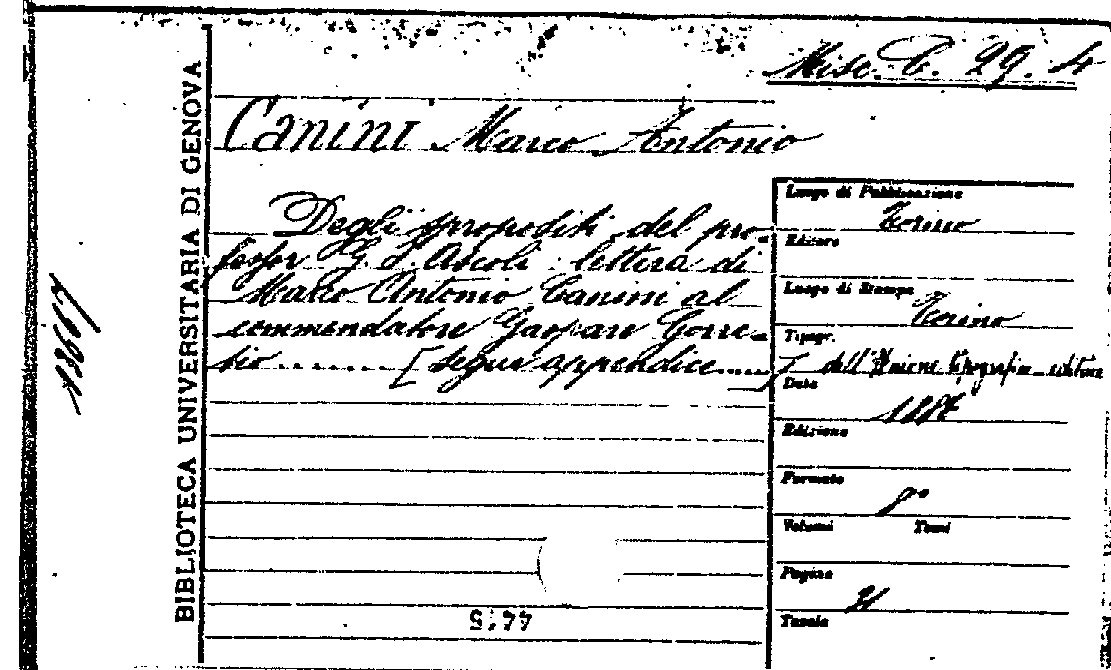 Misc. C. 29. 4
BIBLIOTECA UNIVERSITARIA DI GENOVA
Canini Marco Antonio
Degli spropositi del pro-
fessor G. I. Ascoli: lettera di
Marco Antonio Canini al
commendatore Gaspare Gorre-
sio ........ [segue appendice.....]
Luogo di Pubblicazione
Torino
Editore
Luogo di Stampa
Torino
Tipogr.
dell'Unione tipografico-editrice
Data
Edizione
Formato
8°
Volumi Tomi
Pagine
Tavole